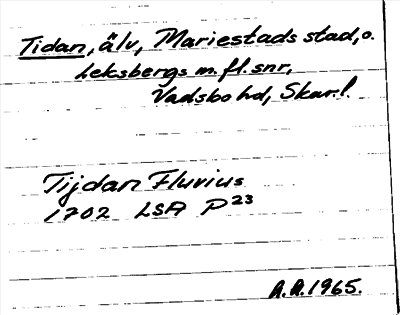 Tidan, älv, Mariestads stad, o.
Leksbergs m.fl. snr,
Vadsbo hd, Skar.l.
Tijdan Fluvius
1702 LSA P23
A.A. 1965.